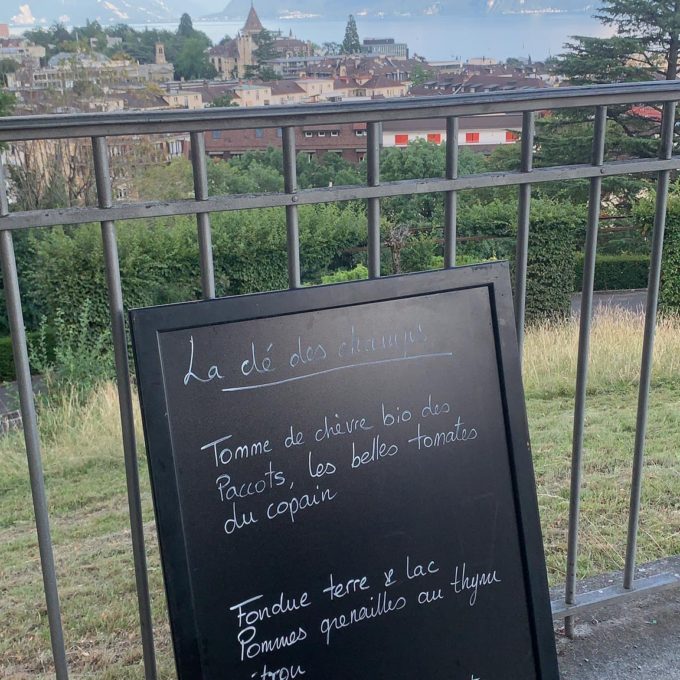 La clé des champs
Tomme de chèvre bio des
Paccots, les belles tomates
du copain
Fondue terre & lac
Pommes grenailles au thym